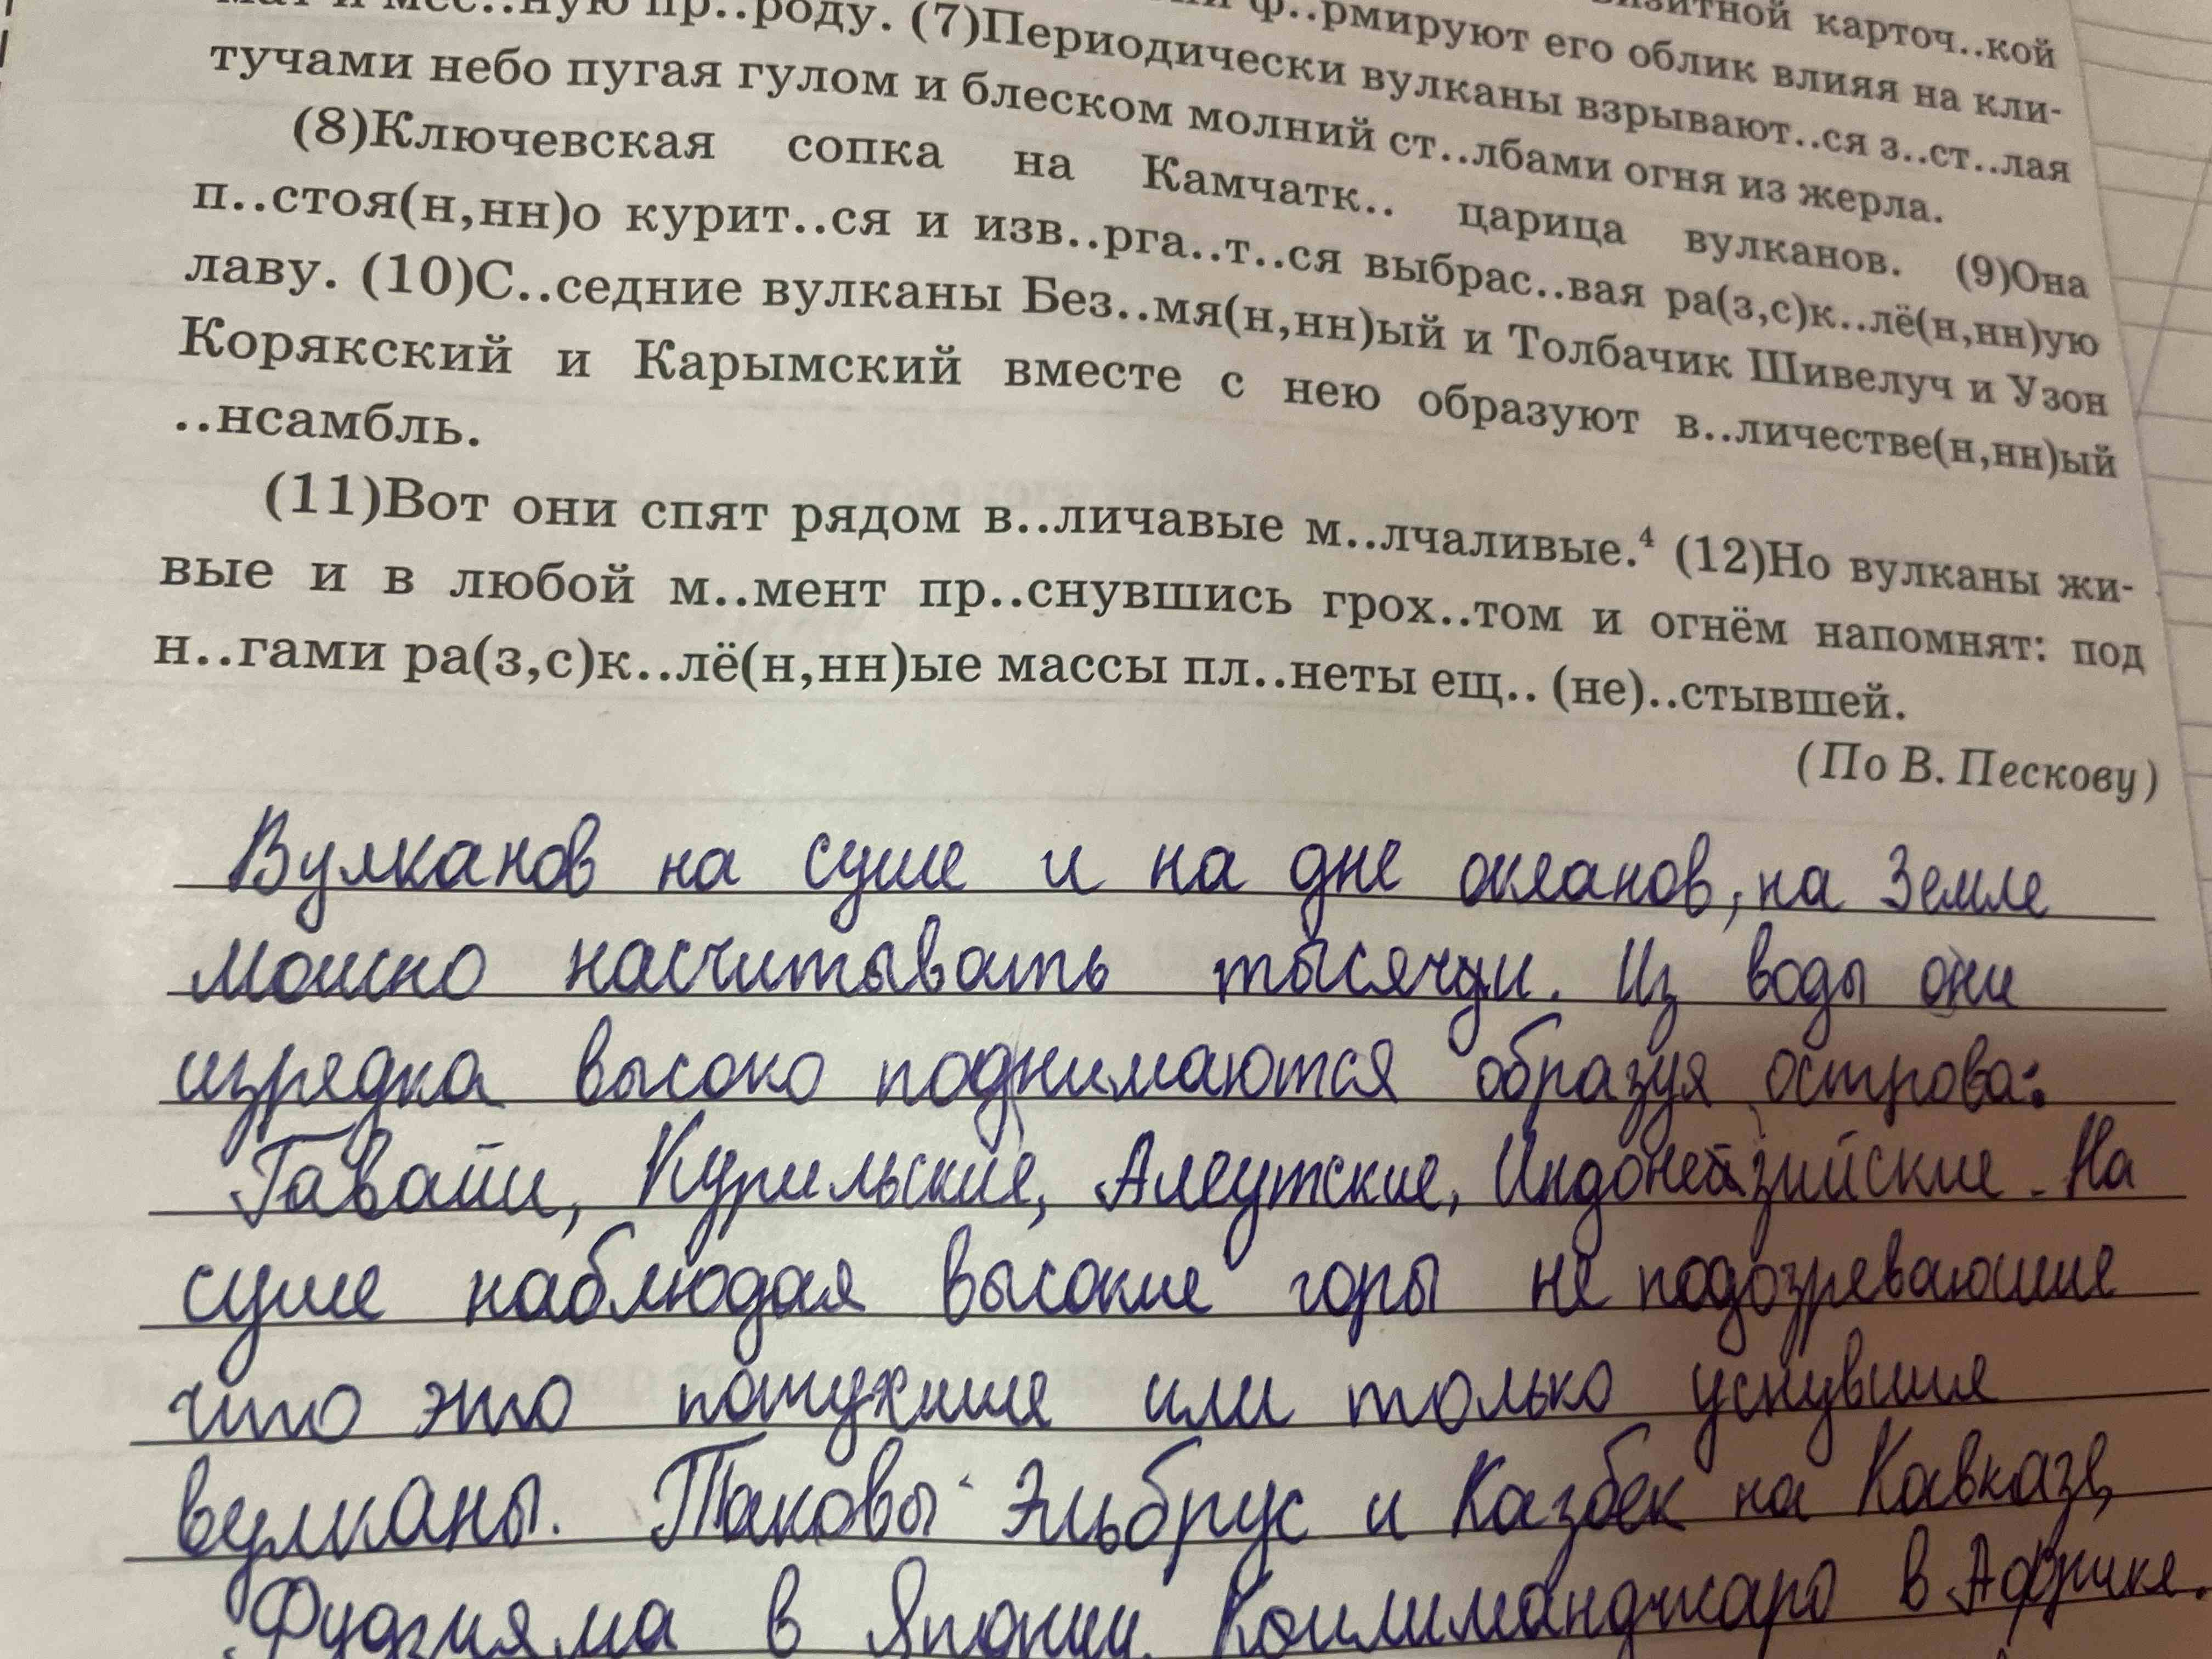 визитной карточ..кой
мат и мес..ную пр..роду. ф..рмируют его облик влияя на кли-
(7)Периодически вулканы взрывают..ся з..ст..лая
тучами небо пугая гулом и блеском молний ст..лбами огня из жерла.
(8)Ключевская сопка на Камчатк.. царица вулканов. (9)Она
п..стоя(н,нн)о курит..ся и изв..рга..т..ся выбрас..вая ра(з,с)к..лё(н,нн)ую
лаву. (10)С..седние вулканы Без..мя(н,нн)ый и Толбачик Шивелуч и Узон
Корякский и Карымский вместе с нею образуют в..личестве(н,нн)ый
..нсамбль.
(11)Вот они спят рядом в..личавые м..лчаливые.⁴ (12)Но вулканы жи-
вые и в любой м..мент пр..снувшись грох..том и огнём напомнят: под
н..гами ра(з,с)к..лё(н,нн)ые массы пл..неты ещ.. (не)..стывшей.
(По В. Пескову)
Вулканов на суше и на дне океанов, на Земле
можно насчитывать тысячи. Из воды они
изредка высоко поднимаются образуя острова:
Гавайи, Курильские, Алеутские, Индонейзийские. На
суше наблюдая высокие горы не подозревающие
что это потухшие или только уснувшие
вулканы. Таковы Эльбрус и Казбек на Кавказе,
Фудзияма в Японии, Килиманджаро в Африке.